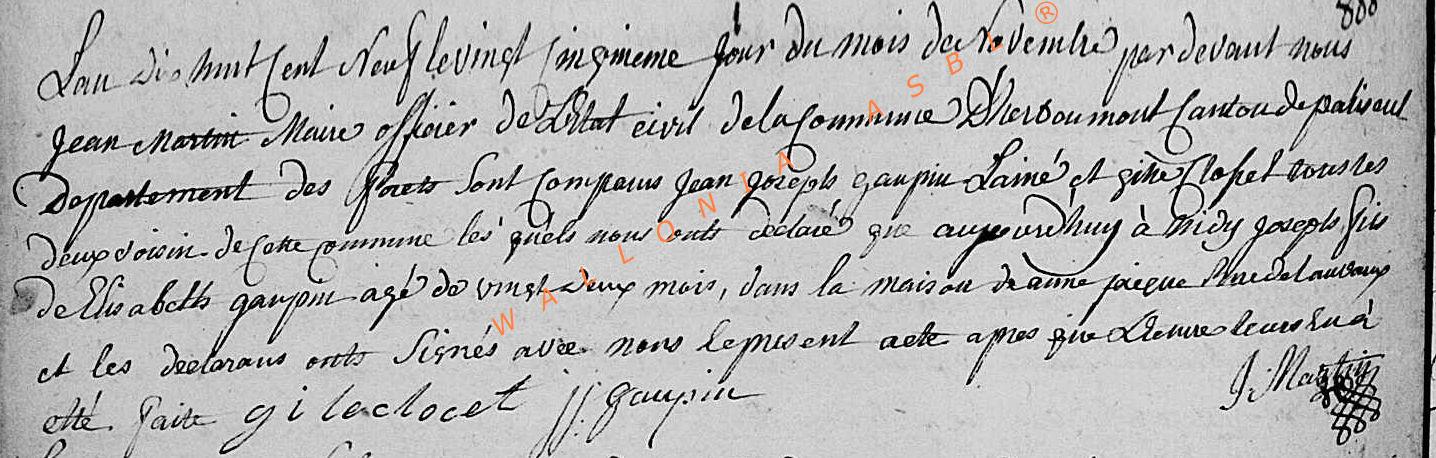 L'an dix huit Cent Neuf le vingt Cinquieme jour du mois de Novembre par devant nous
Jean Martin Maire officier de L'Etat civil de la Commune D'herbeumont Canton de paliseul
Departement des forets Sont Comparus Jean Joseph gaupin L'ainé et gille Closet tous les
deux voisin de Cette commune les quels nous onts declaré que aujourd'huy à Midy Joseph fils
de Elisabeth gaupin agé de vingt deux mois, dans la maison de anne jacque Rue de lauvaux
et les declarans onts Signés avec nous le present acte apres que Lecture leurs en à
etté faite gileclocet j j: gaupin J: Martin
WALLONIA ASBL ®